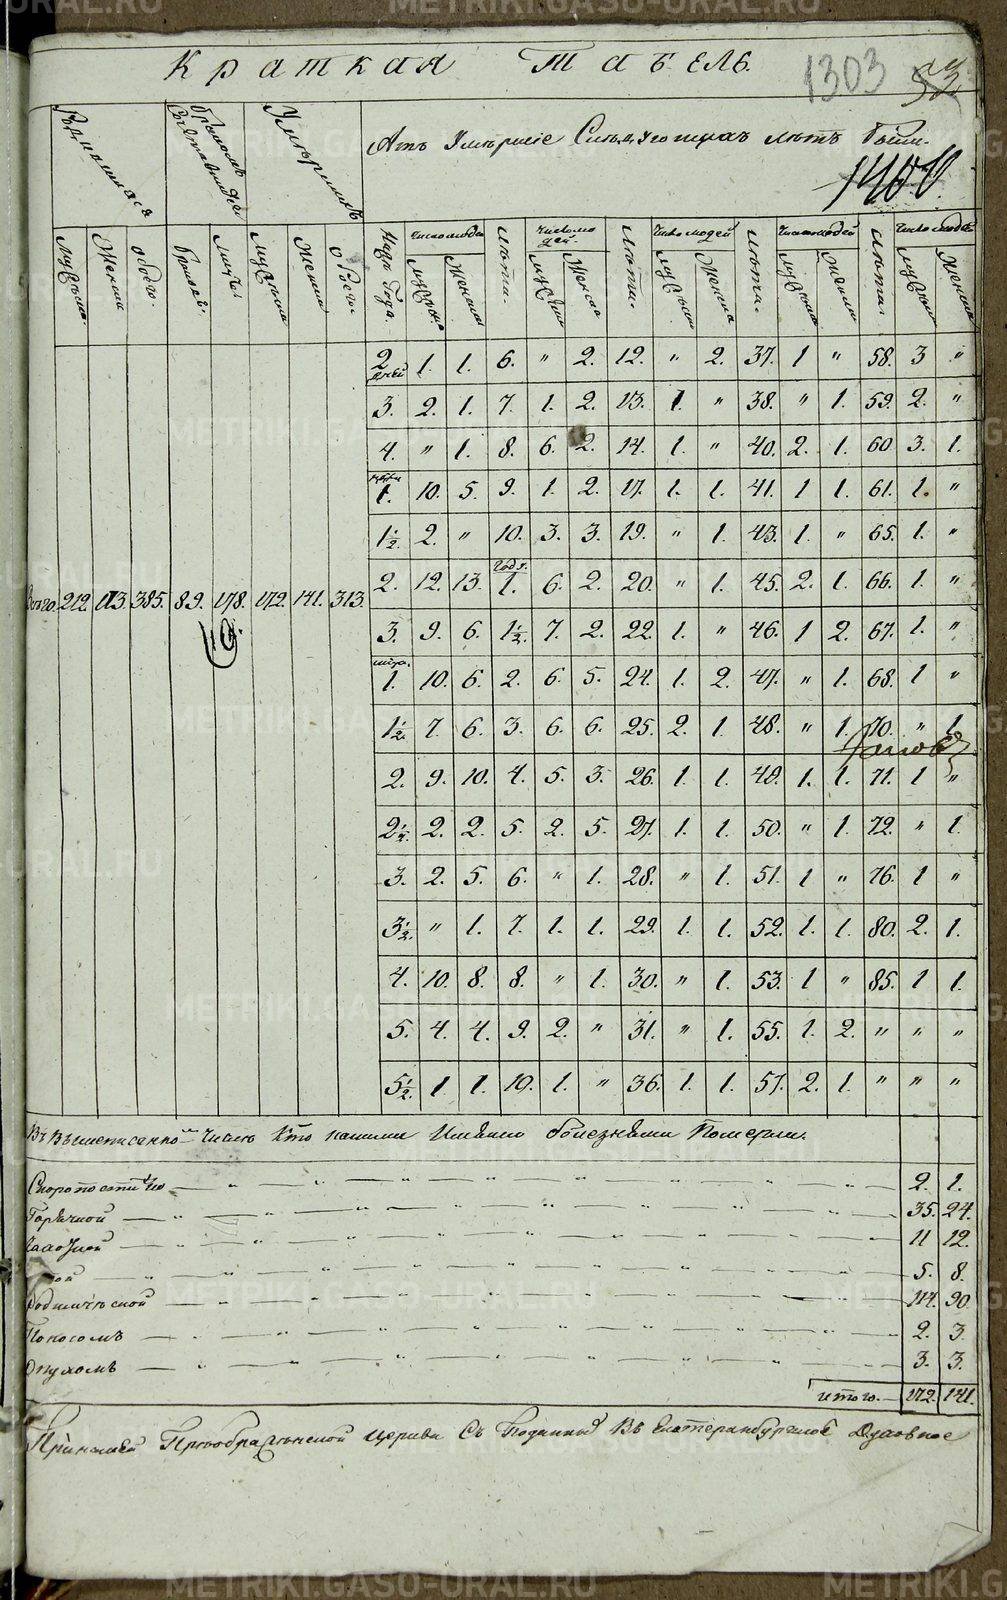 Краткая Табель.
1303
53
Родившихся
Бракомъ
Умершихъ
Атъ Умершіе Сихъ
лѣтъ были.
мужеска. Женска обоего. браковъ. лицъ. мужеска Женска обоего
Года. Число людей мужеска Женска лѣты. Число людей мужеска Женска лѣты. Число людей мужеска Женска лѣты. Число людей мужеска Женска лѣты. Число людей мужеска Женска
2 дней 1. 1. 6. " 2. 12. " 2. 37. 1 " 58. 3 "
3. 2. 1. 7. 1. 2. 13. 1. " 38. " 1. 59. 2. "
4. " 1. 8. 6. 2. 14. 1. " 40. 2. 1. 60 3. 1.
1. 10. 5. 9. 1. 2. 17. 1. 1. 41. 1 1. 61. 1. "
1½. 2. " 10. 3. 3. 19. " 1. 43. 1. " 65. 1. "
2. 12. 13. Года. 1. 6. 2. 20. " 1. 45. 2. 1. 66. 1. "
Всего. 212. 173. 385. 89. 178. 172. 141. 313.
3. 9. 6. 1½. 7. 2. 22. 1. " 46. 1 2. 67. 1. "
1. 10. 6. 2. 6. 5. 24. 1. 2. 47. " 1. 68. 1 "
1½. 7. 6. 3. 6. 6. 25. 2. 1. 48. " 1. 70. " 1.
2. 9. 10. 4. 5. 3. 26. 1. 1. 49. 1. 1. 71. 1 "
2¼. 2. 2. 5. 2. 5. 27. 1. 1. 50. " 1. 72. " 1.
3. 2. 5. 6. " 1. 28. " 1. 51. 1 " 76. 1 "
3½. " 1. 7. 1. 1. 29. 1. 1. 52. 1. 1. 80. 2. 1.
4. 10. 8. 8. " 1. 30. " 1. 53. 1 " 85. 1 1.
5. 4. 4. 9. 2. " 31. " 1. 55. 1. 2. " " "
5½. 1 1. 10. 1. " 36. 1. 1. 57. 2. 1. " " "
Въ Вышеписанно числѣ Кто какими Имянно болезнями Померли.
Скоропостижно 2. 1.
Горячкой 35. 24.
11 12.
5. 8.
Родимческой 114. 90.
Поносомъ 2. 3.
Опухомъ 3. 3.
итого. 172. 141.
Преображенской церкви Съ Въ Екатеринбургское Духовное
METRIKI.GASO-URAL.RU